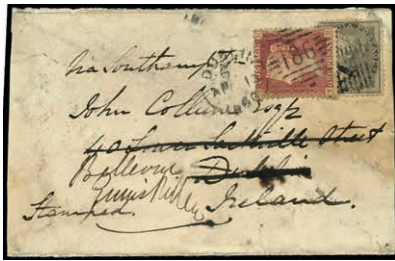 Via Southampton
John Collins Esqr
40 Lower Sackville Street
Bellevue Dublin
Enniskillen
Ireland.
Stamped.
186